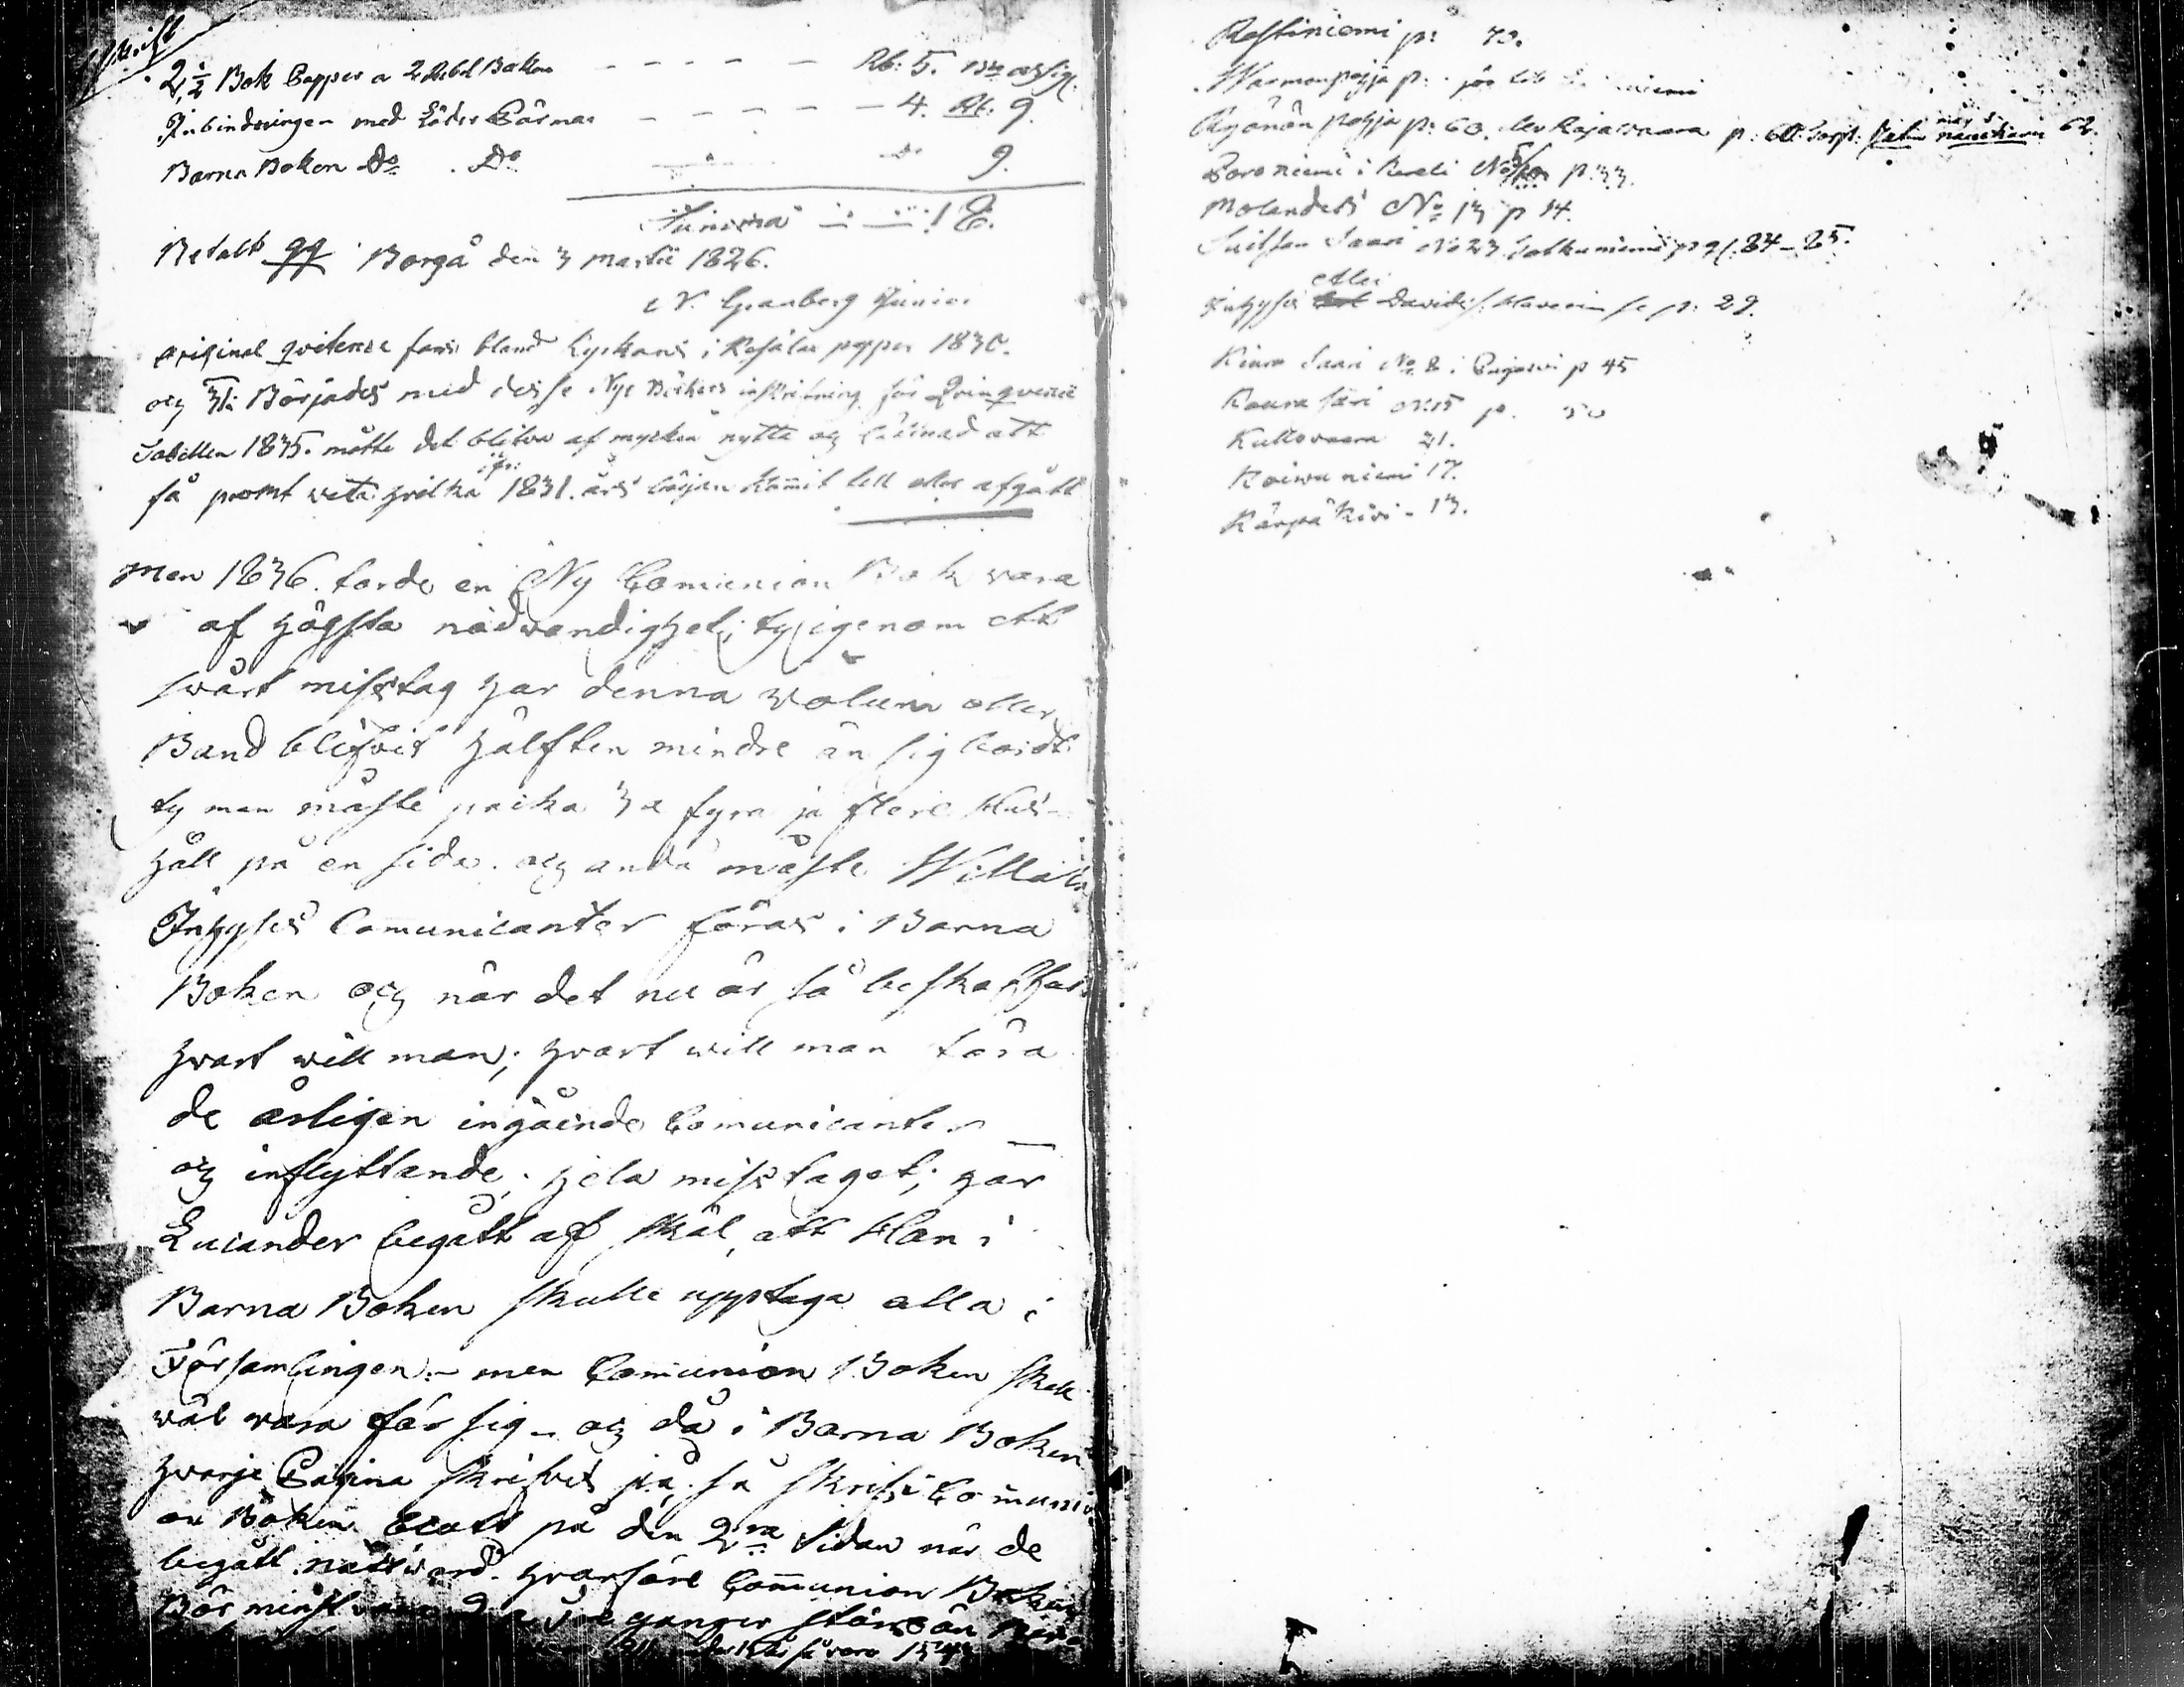 Afskrift
2 1/2 Bok Papper a 2 Rubel Boken - - - - - Rb: 5. B:co ass:
Inbindningen med Läder Pärmar - - - - 4. Rb. 9.
Barna Boken Do. Do. Do 9.
Summa 18.
Betalt qq Borgå den 3 Martii 1826.
N. Granberg Junior
original qvitence fans bland Kyrkans papper 1830.
och Börjades med desse Nye Böckers inskrifning för Qvinqvenii
Tabellen 1835. måtte det blifva af mycken nytta och att
få promt veta hvilka ifr: 1831. års början kom̅it till eller afgått
Men 1836. torde en Ny Com̅union Bok vara
af högsta nödvändighet; ty igenom ett
svårt misstag har denna volum eller
Band blifvit hälften mindre än sig bordt
ty man måste packa 3 a fyra ja flere Hus-
håll på en sida. och ändå måste
Inhyses Com̅unicanter föras i Barna
Boken och när det nu är så beskaffat
hvart vill man; hvart vill man föra
de årligen ingående Com̅unicanter
och inflyttande. hela misstaget; har
Lucander begått af skäl, att Han i
Barna Boken skulle upptaga alla i
Församlingen - men Com̅union Boken skall
väl vara för sig - och då i Barna Boken
hvarje Pagina skrifves på, så skrifs i Com̅uni-
on Boken blott på den 2ra sidan när de
begått nattvard. hvarföre Com̅union Boken
Bör minst vara 2 a 3ne gånger större än
Restiniemi p: 73.
Warmonpohja p:
Ryönän pohja p: 60. Rajavaara p: 60. Torp: 62.
Poroniemi i Kereli No p: 33.
Molanders No 13 p 14.
Saari No 23 p 84-85.
eller
Inhyses Davids p: 29.
Kiura Saari No 8 p 45
Koura No 15 p.
Kuttovaara 21.
Koivu niemi 17.
Kärpä Kivi - 13.